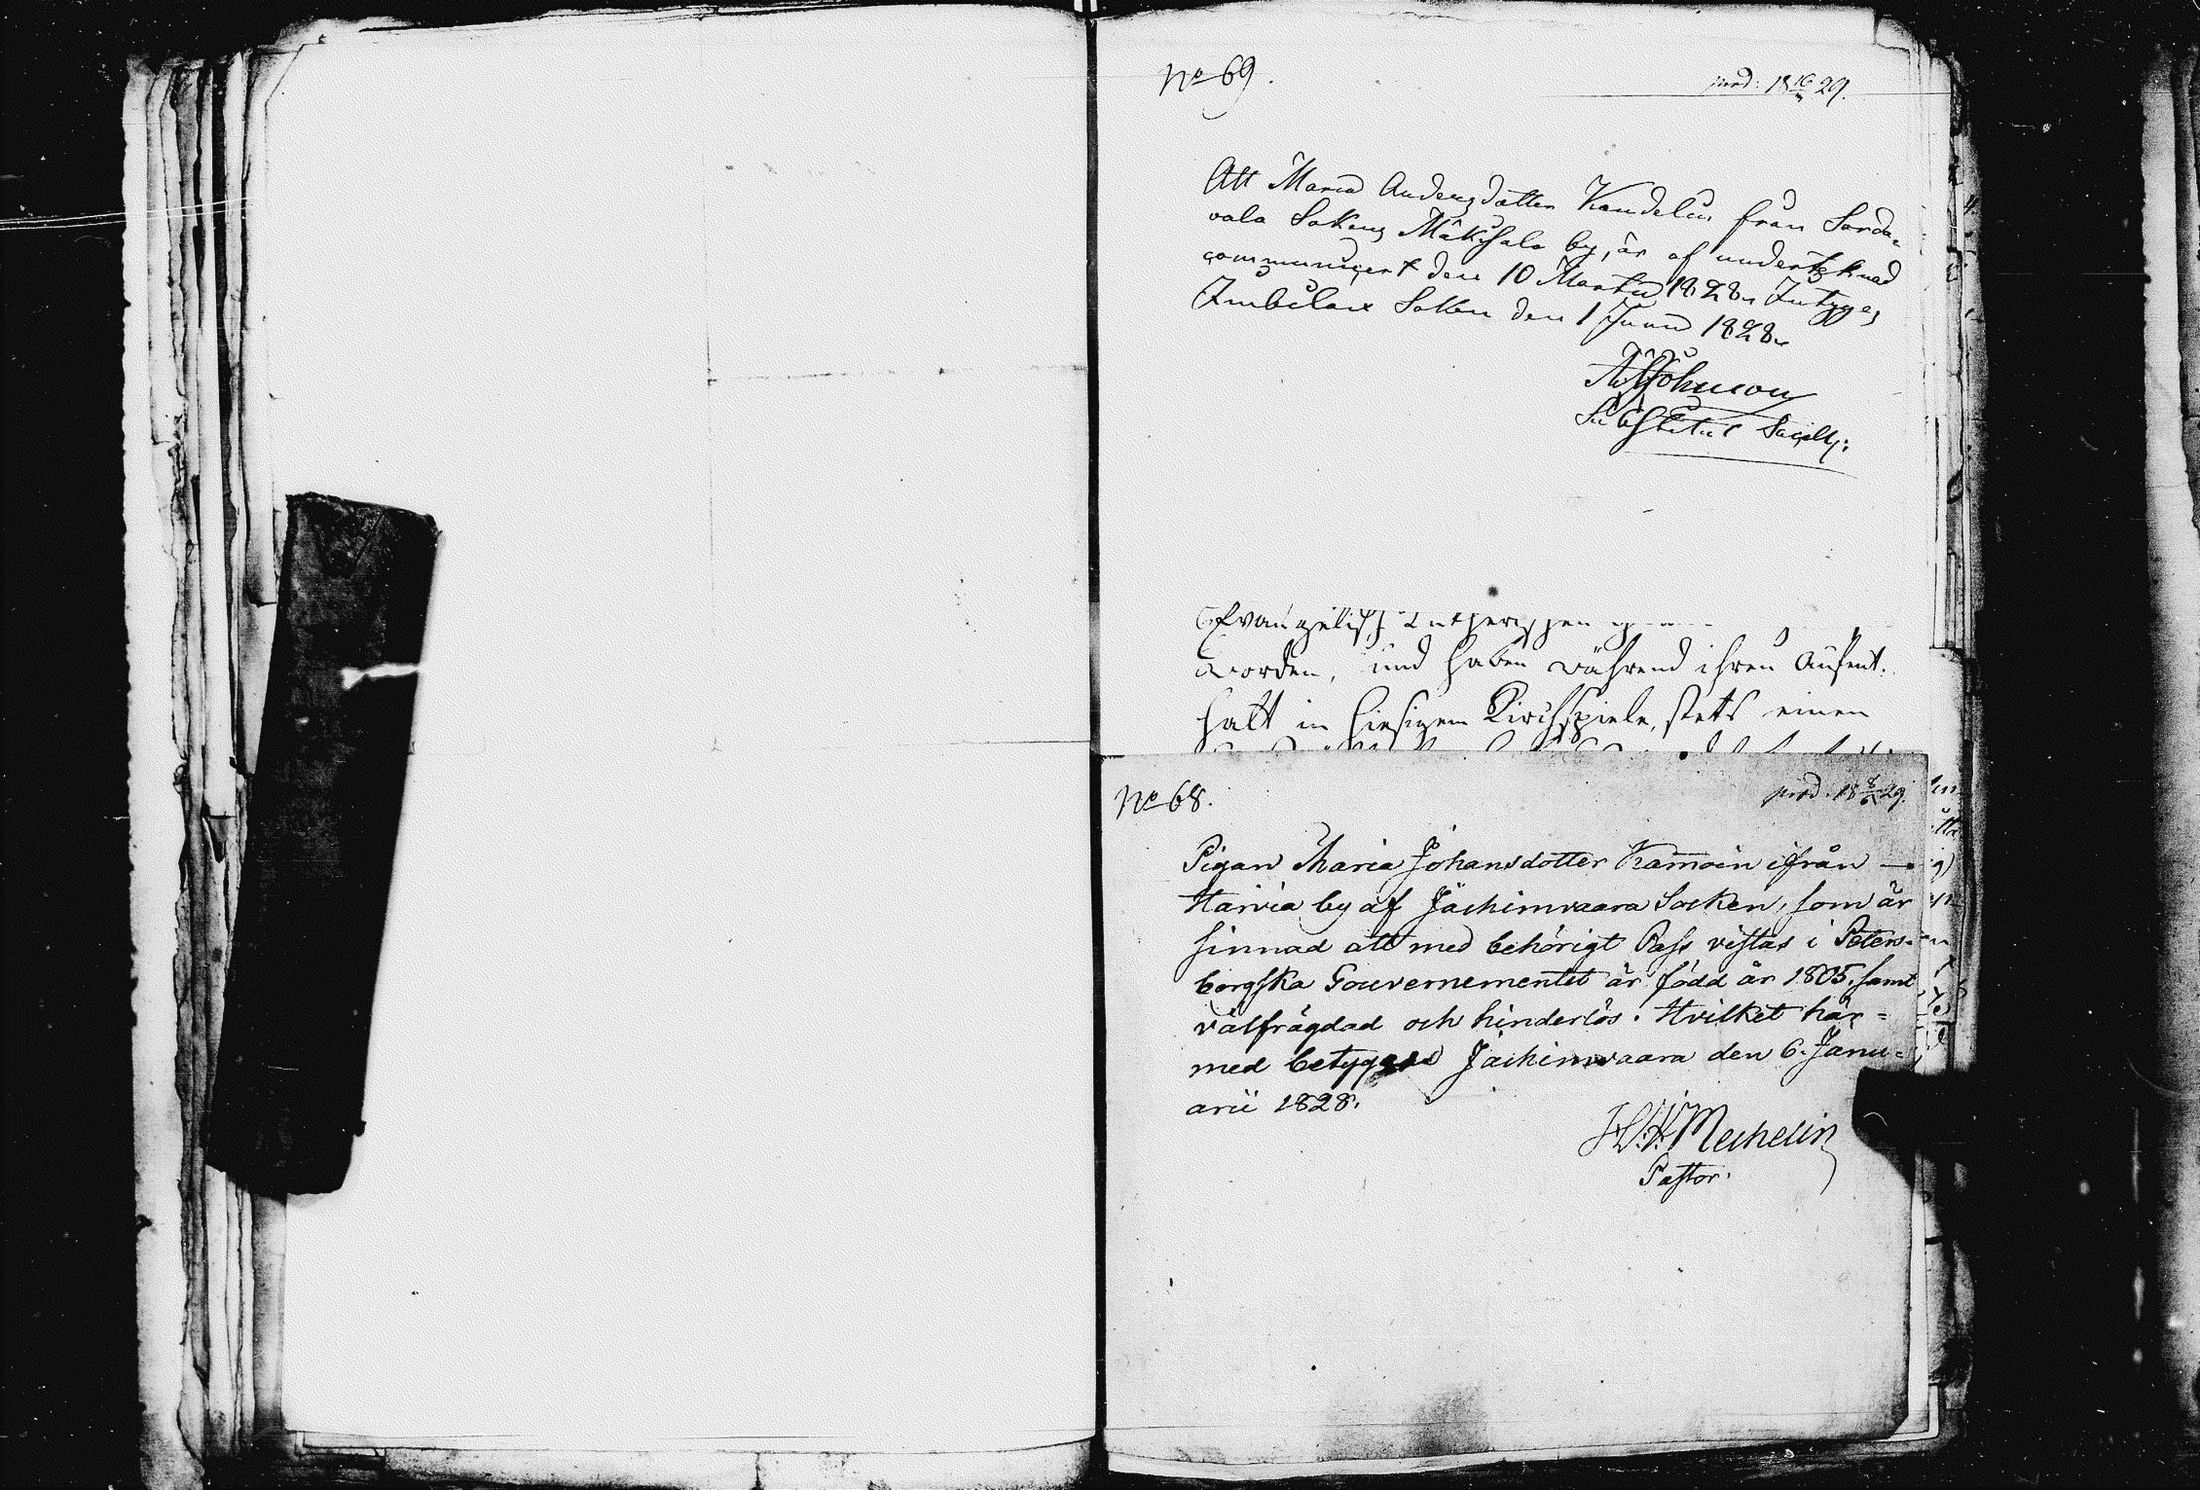 No 69.
prod: 18 16/ 29.
Att Maria Andersdotter Kandelin från Sorda=
vala Sokens Mäkisalo by, är af underteknad
communicert den 10 Martii 1828. Intyges
Imbilax Soken den 1 Junii 1828.
Johnson
Substitut Sacell:
Evangelisch Lutherischen
worden, und haben während ihren Aufent=
halt in hiesigem Kirchspiele, stets einen
No 68.
prod. 18 8/6 29.
Pigan Maria Johansdotter Kamoin ifrån —
Harvia by af Jächimvaara Socken, som är
sinnad att med behörigt Pass vistas i Peters=
borgska Gouvernementet är född år 1805, samt
välfrägdad och hinderlös. Hvilket här=
med betygas Jächimvaara den 6. Janu=
arii 1828.
Mechelin
Pastor.